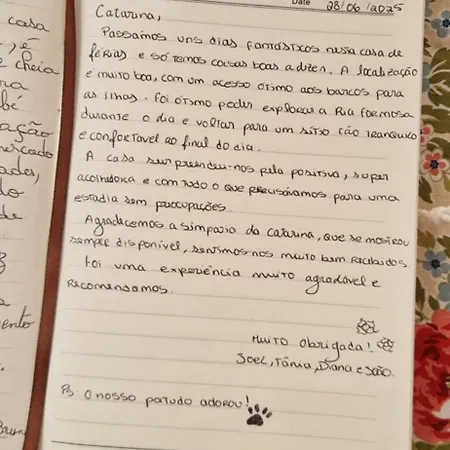 casa
, é
e cheia
na
bé
ação
mercado
ades,
do
de
s
ento
Brun
Date 28/06/2025
Catarina,
Passámos uns dias fantásticos nesta casa de
férias e só temos coisas boas a dizer. A localização
é muito boa, com um acesso ótimo aos barcos para
as ilhas. Foi ótimo poder explorar a Ria Formosa
durante o dia e voltar para um sítio tão tranquilo
e confortável ao final do dia.
A casa surpreendeu-nos pela positiva, super
acolhedora e com tudo o que precisávamos para uma
estadia sem preocupações.
Agradecemos a simpatia da Catarina, que se mostrou
sempre disponível, sentimos-nos muito bem recebidos.
Foi uma experiência muito agradável e
recomendamos.
Muito Obrigada!
Joel, Tânia, Diana e João.
Ps: O nosso patudo adorou!